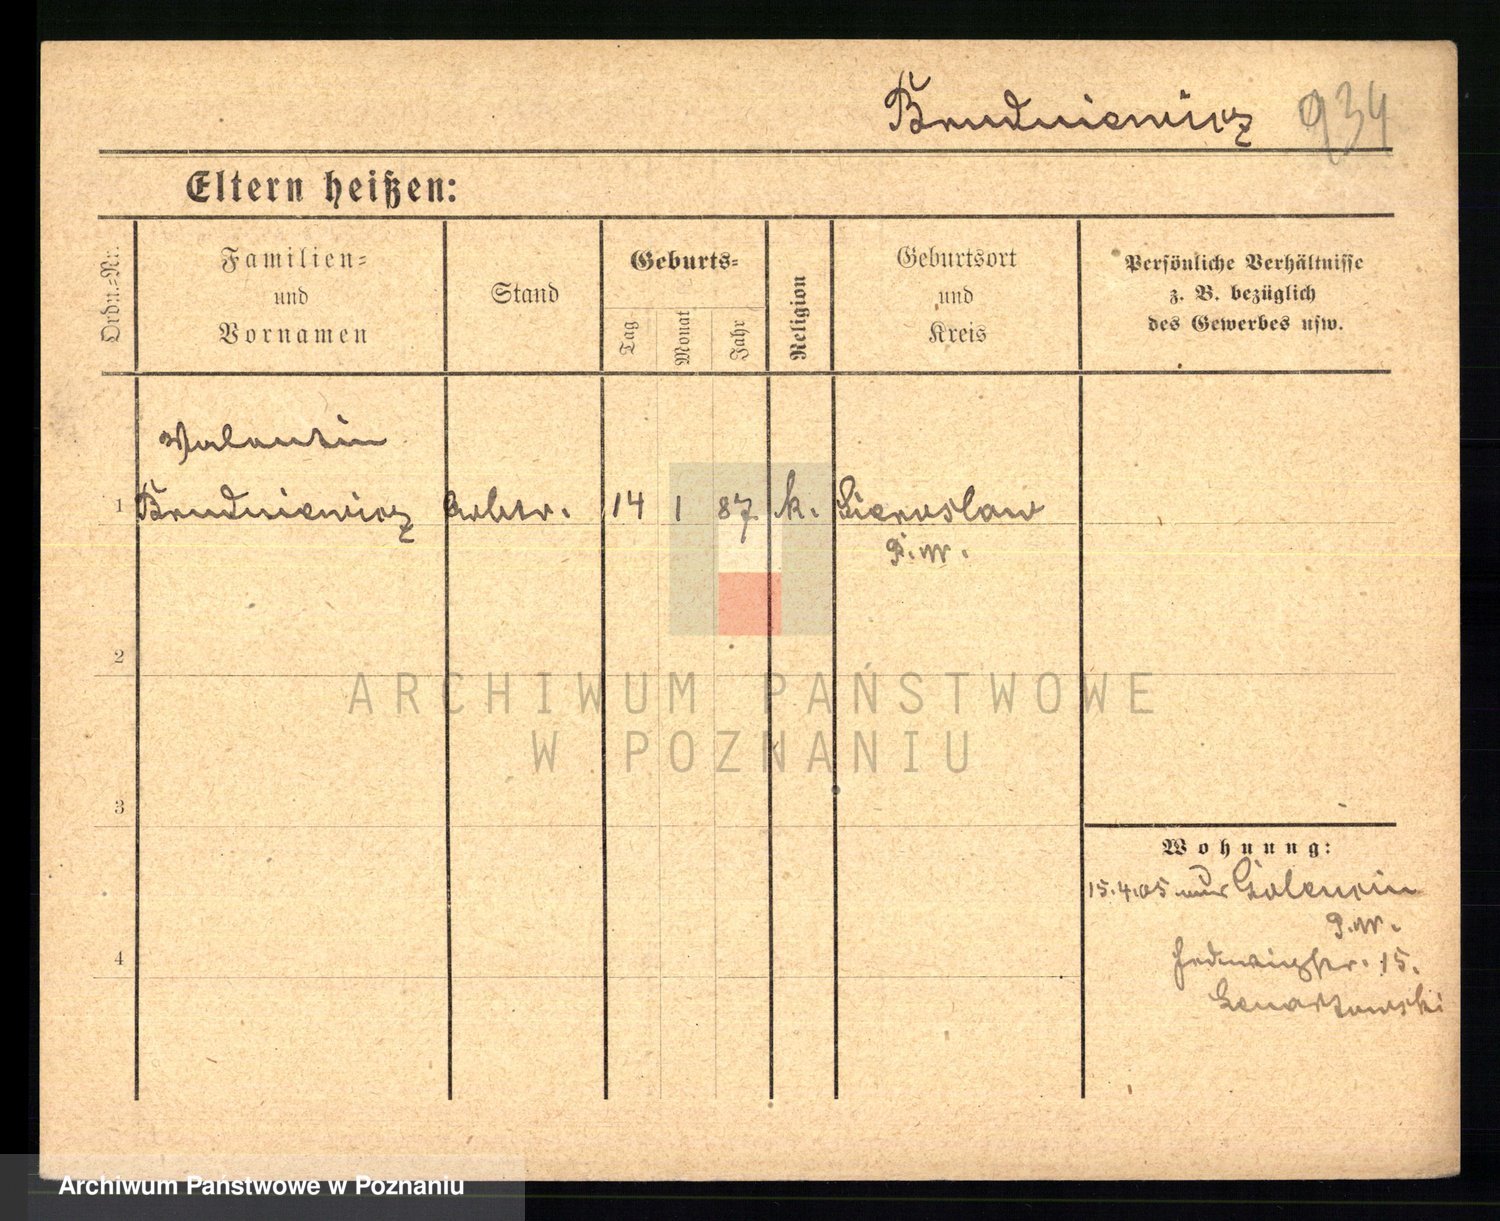 Brudniewicz 934
Eltern heißen:
Ordn.=Nr.
Familien=
und
Vornamen
Stand
Geburts=
Tag
Monat
Jahr
Religion
Geburtsort
und
Kreis
Persönliche Verhältnisse
z. B. bezüglich
des Gewerbes usw.
Valentin
1 Brudniewicz Arbtr. 14 1 87. k. Sieroslaw
P. W.
2
ARCHIWUM PAŃSTWOWE
W POZNANIU
3
Wohnung:
15.4.05 aus Golencin
P. W.
4
Hedwigstr. 15.
Lenartowski
Archiwum Państwowe w Poznaniu